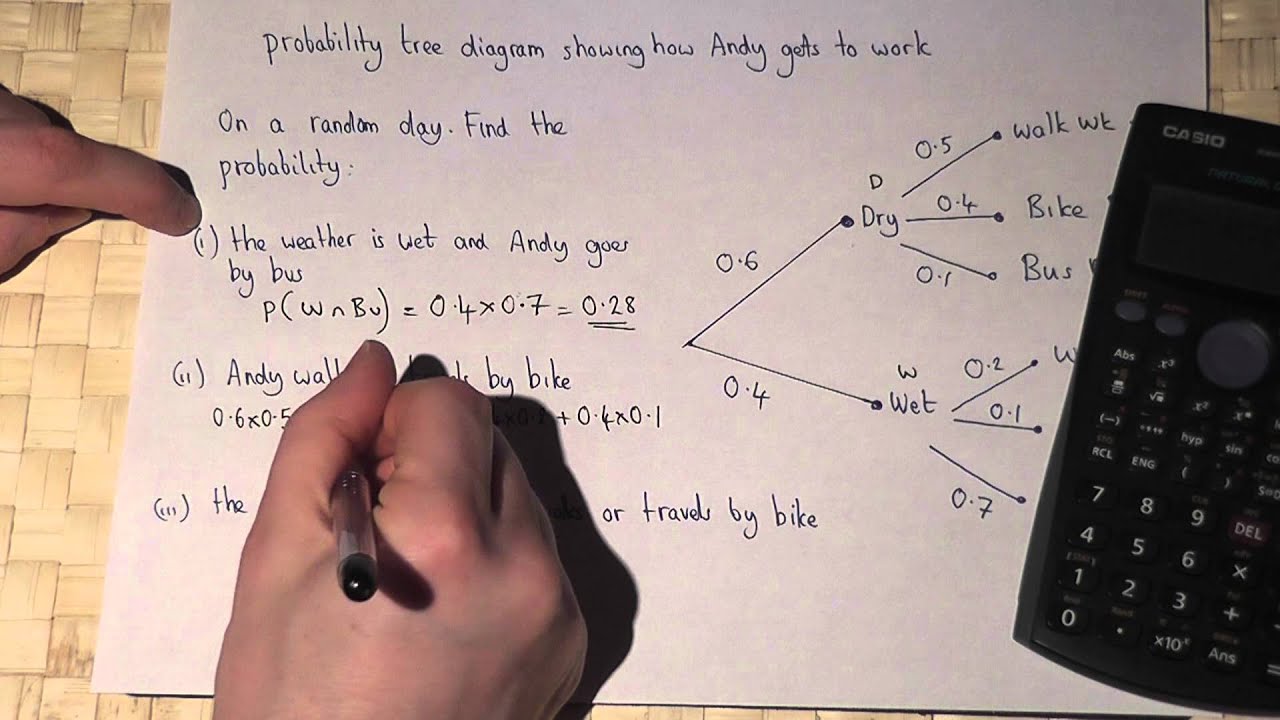 probability tree diagram showing how Andy gets to work
On a random day. Find the
probability:
(i) the weather is wet and Andy goes
by bus
P(W∩Bu) = 0.4×0.7 = 0.28
(ii) Andy by bike
0.6×0.5 + 0.4×0.1
(iii) the or travels by bike
0.6
0.4
D
Dry
W
Wet
0.5
Walk Wk
0.4
Bike
0.1
Bus
0.2
W
0.1
0.7
CASIO
NATURAL
SHIFT
ALPHA
Abs
x³
x²
hyp
sin
RCL
ENG
(
)
7
8
9
DEL
4
5
6
×
1
2
3
+
0
.
×10ˣ
Ans
=